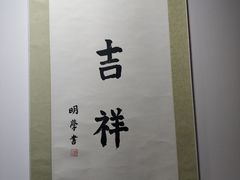 吉祥
明學書